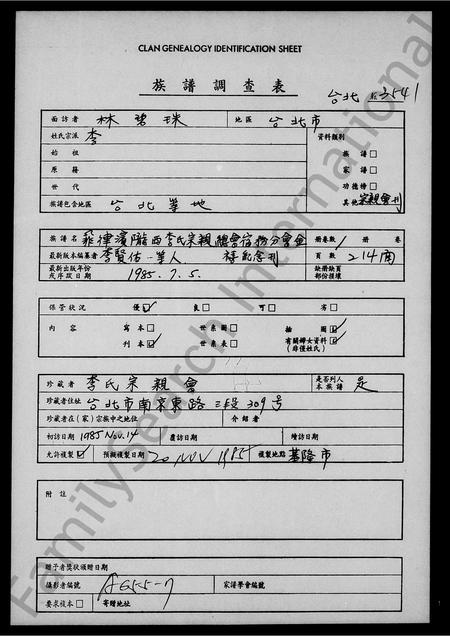 CLAN GENEALOGY IDENTIFICATION SHEET
族譜調查表
台北 3541
面訪者 林碧珠 地區 台北市
姓氏宗派 李 資料類別
始祖 族譜
原籍 家譜
世代 功德榜
族譜包含地區 台北等地 其他 宗親會刊
族譜名 菲律濱隴西李氏宗親總會宿務分會金禧紀念刊 冊卷數 1 冊 卷
最新版本編纂者 李賢佑 等人 頁數 214面
最新出版年份或序跋日期 1985.7.5. 缺冊缺頁部份損壞
保管狀況 優 良 可 劣
內容 寫本 世系圖 插圖
刊本 世系表 有關婦女資料(非僅姓氏)
珍藏者 李氏宗親會 是否列入本族譜 是
珍藏者住址 台北市南京東路三段309號
珍藏者在(家)宗族中之地位 介紹者
初訪日期 1985 Nov. 14 覆訪日期 續訪日期
允許複製 預擬複製日期 20 NOV 1985 複製地點 基隆市
附註
贈予者獎狀頒贈日期
攝影者編號 A655-7 家譜學會編號
要求複本 寄贈地址
FamilySearch International